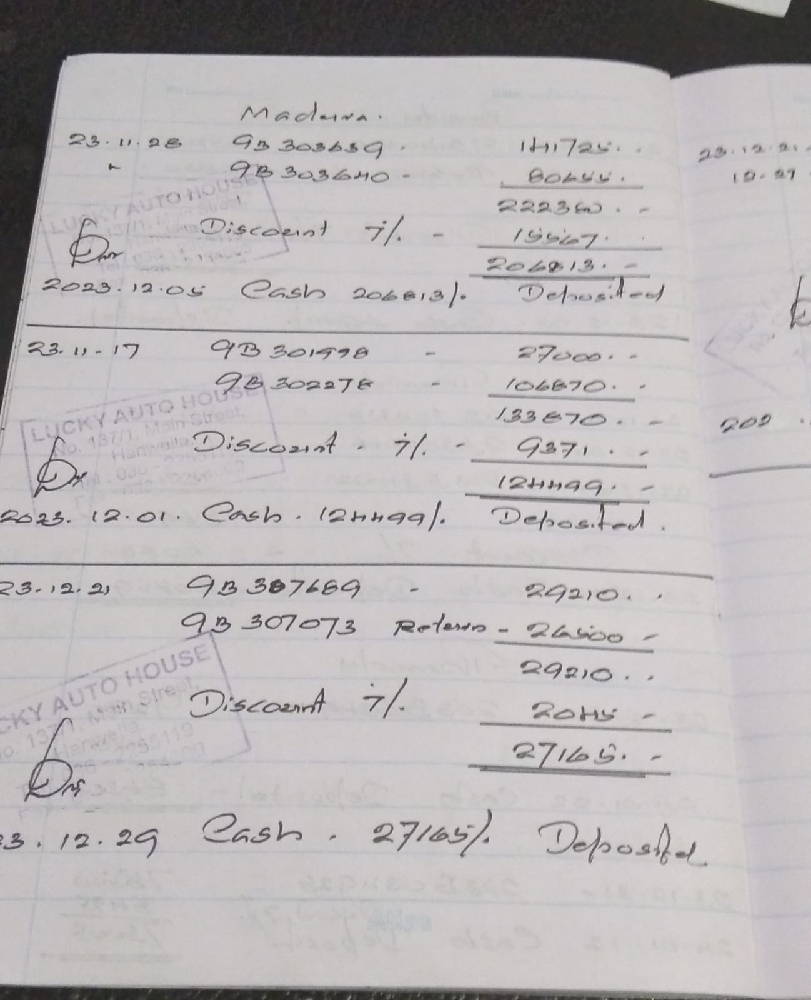 Madura.
23.11.28 9B 303639 - 141725. -
" 9B 303640 - 80655. -
222380. -
Discount 7%. - 15567. -
206813. -
2023.12.05 Cash 206813/. Deposited
23.11-17 9B 301998 - 27000. -
9B 302278 - 106870. -
133870. -
Discount - 7%. - 9371. -
124499. -
2023. 12.01. Cash. 124499/. Deposited.
23.12.21 9B 307689 - 29210. -
9B 307073 Return - 26500 -
29210. -
Discount 7%. 2045 -
27165. -
3.12.29 Cash. 27165/. Deposited.
LUCKY AUTO HOUSE
137/1, Main Street,
LUCKY AUTO HOUSE
No. 137/1, Main Street,
Hanwella
CKY AUTO HOUSE
No. 137/1, Main Street,
Hanwella
23.12.2
12.21
202